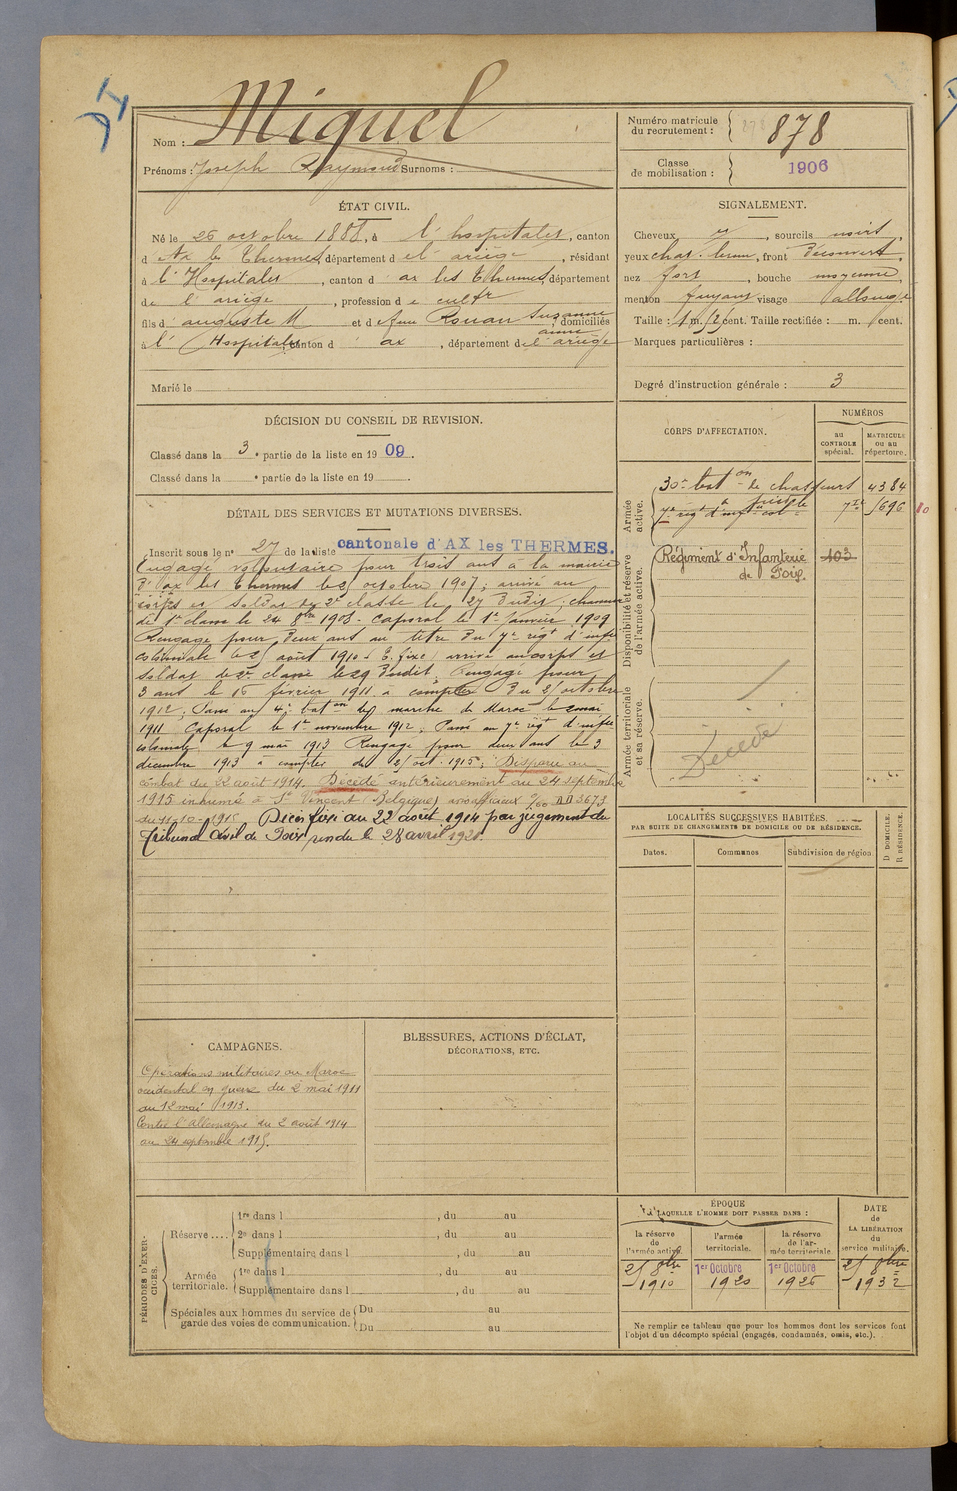 Nom : Miquel
Prénoms : Joseph Raymond Surnoms :
Numéro matricule du recrutement : 878
Classe de mobilisation : 1906
ÉTAT CIVIL.
Né le 26 octobre 1888, à l'hospitalet, canton
d'Ax les Thermes, département de l'ariège, résidant
à l'Hospitalet, canton d ax les Thermes, département
de l'ariège, profession de cultr
fils d'auguste M et de feue Rouan Suzanne anne, domiciliés
à l'Hospitalet, canton d'ax, département de l'ariège
Marié le
SIGNALEMENT.
Cheveux, sourcils noirs,
yeux chat. , front découvert,
nez fort, bouche moyenne,
menton fuyant visage allongé
Taille : 1 m. cent. Taille rectifiée : m. cent.
Marques particulières :
Degré d'instruction générale : 3
DÉCISION DU CONSEIL DE REVISION.
Classé dans la 3e partie de la liste en 1909.
Classé dans la e partie de la liste en 19
DÉTAIL DES SERVICES ET MUTATIONS DIVERSES.
Inscrit sous le no 27 de la liste cantonale d'AX les THERMES.
Engagé volontaire pour trois ans à la mairie
d'ax les Thermes le 2 octobre 1907; arrivé au
corps et soldat de 2e classe le 27 dudit; chasseur
de 1e classe le 24 8bre 1908. Caporal le 1er janvier 1909
Rengagé pour deux ans au titre du 7e régt d'infie
coloniale le août 1910. arrivé au corps et
soldat de 2e classe le 29 dudit. Rengagé pour
3 ans le 16 février 1911 à compter du octobre
1912; Passé au 4e baton de marche du Maroc le 2 mai
1911 Caporal le 1er novembre 1912. Passé au 7e régt d'infie
coloniale le 9 mai 1913 Rengagé pour deux ans le 3
décembre 1913 à compter du oct. 1915; Disparu au
combat du 22 août 1914. Décédé antérieurement au 24 septembre
1915 inhumé à St Vincent (Belgique) avis officieux no DD 3673
du 11-10-1915 Décès fixé au 22 août 1914 par jugement du
Tribunal civil de Foix rendu le 28 avril 1920.
CORPS D'AFFECTATION.
NUMÉROS
au CONTROLE spécial.
MATRICULE ou au répertoire.
Armée active.
30e baton de chasseurs à pied 4384
7e régt d'infie cole 1696
10
Disponibilité et réserve de l'armée active.
Régiment d'Infanterie de Foix. 103
Armée territoriale et sa réserve.
Décédé
LOCALITÉS SUCCESSIVES HABITÉES.
PAR SUITE DE CHANGEMENTS DE DOMICILE OU DE RÉSIDENCE.
Dates.
Communes
Subdivision de région.
D DOMICILE.
R RÉSIDENCE.
CAMPAGNES.
Opérations militaires au Maroc
occidental en guerre du 2 mai 1911
au 12 mai 1913.
Contre l'allemagne du 2 août 1914
au 24 septembre 1915.
BLESSURES, ACTIONS D'ÉCLAT,
DÉCORATIONS, ETC.
PÉRIODES D'EXERCICES.
Réserve ....
1re dans l , du au
2e dans l , du au
Supplémentaire dans l , du au
Armée territoriale.
1re dans l , du au
Supplémentaire dans l , du au
Spéciales aux hommes du service de garde des voies de communication.
Du au
Du au
ÉPOQUE
A LAQUELLE L'HOMME DOIT PASSER DANS :
la réserve de l'armée active.
l'armée territoriale.
la réserve de l'armée territoriale
DATE de LA LIBÉRATION du service militaire.
8bre 1910
1er Octobre 1920
1er Octobre 1926
8bre 1932
Ne remplir ce tableau que pour les hommes dont les services font
l'objet d'un décompte spécial (engagés, condamnés, omis, etc.).